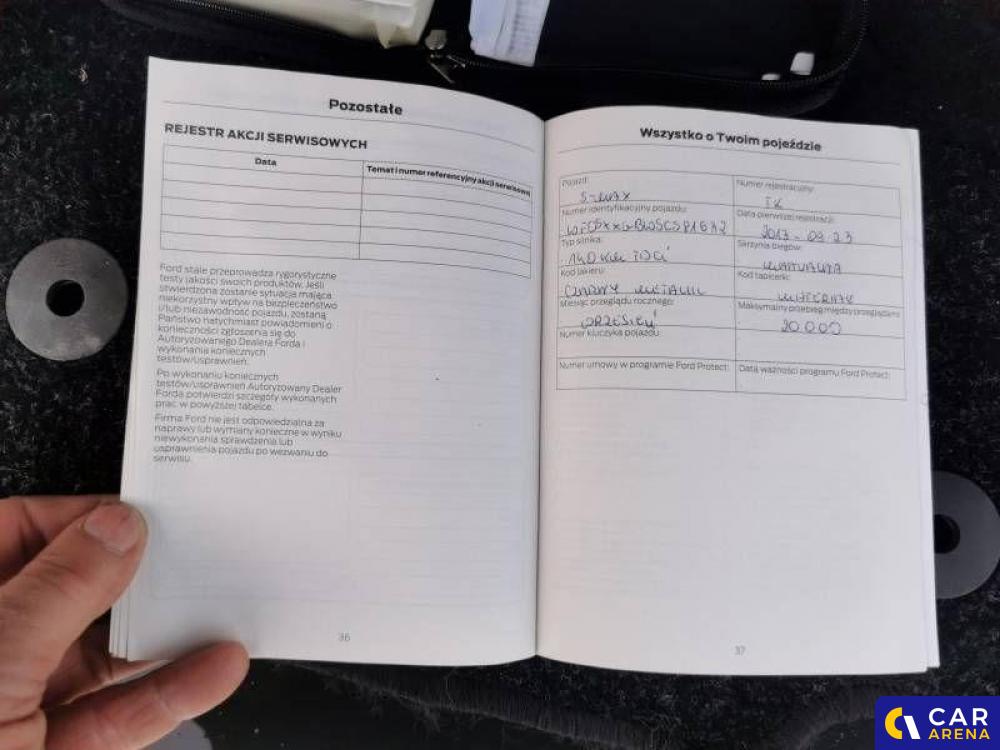 Pozostałe
REJESTR AKCJI SERWISOWYCH
Data
Temat i numer referencyjny akcji serwisowej
Ford stale przeprowadza rygorystyczne
testy jakości swoich produktów. Jeśli
stwierdzona zostanie sytuacja mająca
niekorzystny wpływ na bezpieczeństwo
i/lub niezawodność pojazdu, zostaną
Państwo natychmiast powiadomieni o
konieczności zgłoszenia się do
Autoryzowanego Dealera Forda i
wykonania koniecznych
testów/usprawnień.
Po wykonaniu koniecznych
testów/usprawnień Autoryzowany Dealer
Forda potwierdzi szczegóły wykonanych
prac w powyższej tabelce.
Firma Ford nie jest odpowiedzialna za
naprawy lub wymiany konieczne w wyniku
niewykonania sprawdzenia lub
usprawnienia pojazdu po wezwaniu do
serwisu.
36
Wszystko o Twoim pojeździe
Pojazd:
S-MAX
Numer rejestracyjny:
TK
Numer identyfikacyjny pojazdu:
Data pierwszej rejestracji:
2013-09-23
Typ silnika:
140 KM TDCi
Skrzynia biegów:
MANUALNA
Kod lakieru:
CZARNY METALIK
Kod tapicerki:
MATERIAŁ
Miesiąc przeglądu rocznego:
WRZESIEŃ
Maksymalny przebieg między przeglądami:
20.000
Numer kluczyka pojazdu:
Numer umowy w programie Ford Protect:
Data ważności programu Ford Protect:
37
CAR
ARENA